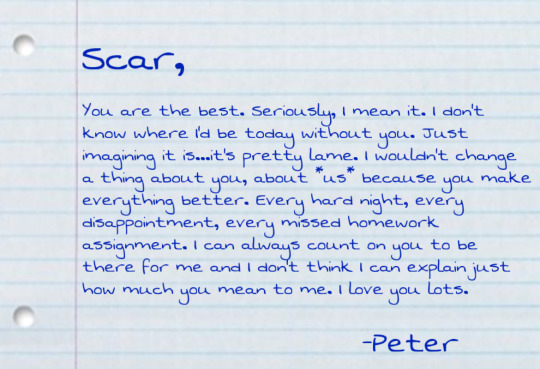 Scar,
You are the best. Seriously, I mean it. I don't
know where I'd be today without you. Just
imagining it is...it's pretty lame. I wouldn't change
a thing about you, about *us* because you make
everything better. Every hard night, every
disappointment, every missed homework
assignment. I can always count on you to be
there for me and I don't think I can explain just
how much you mean to me. I love you lots.
-Peter